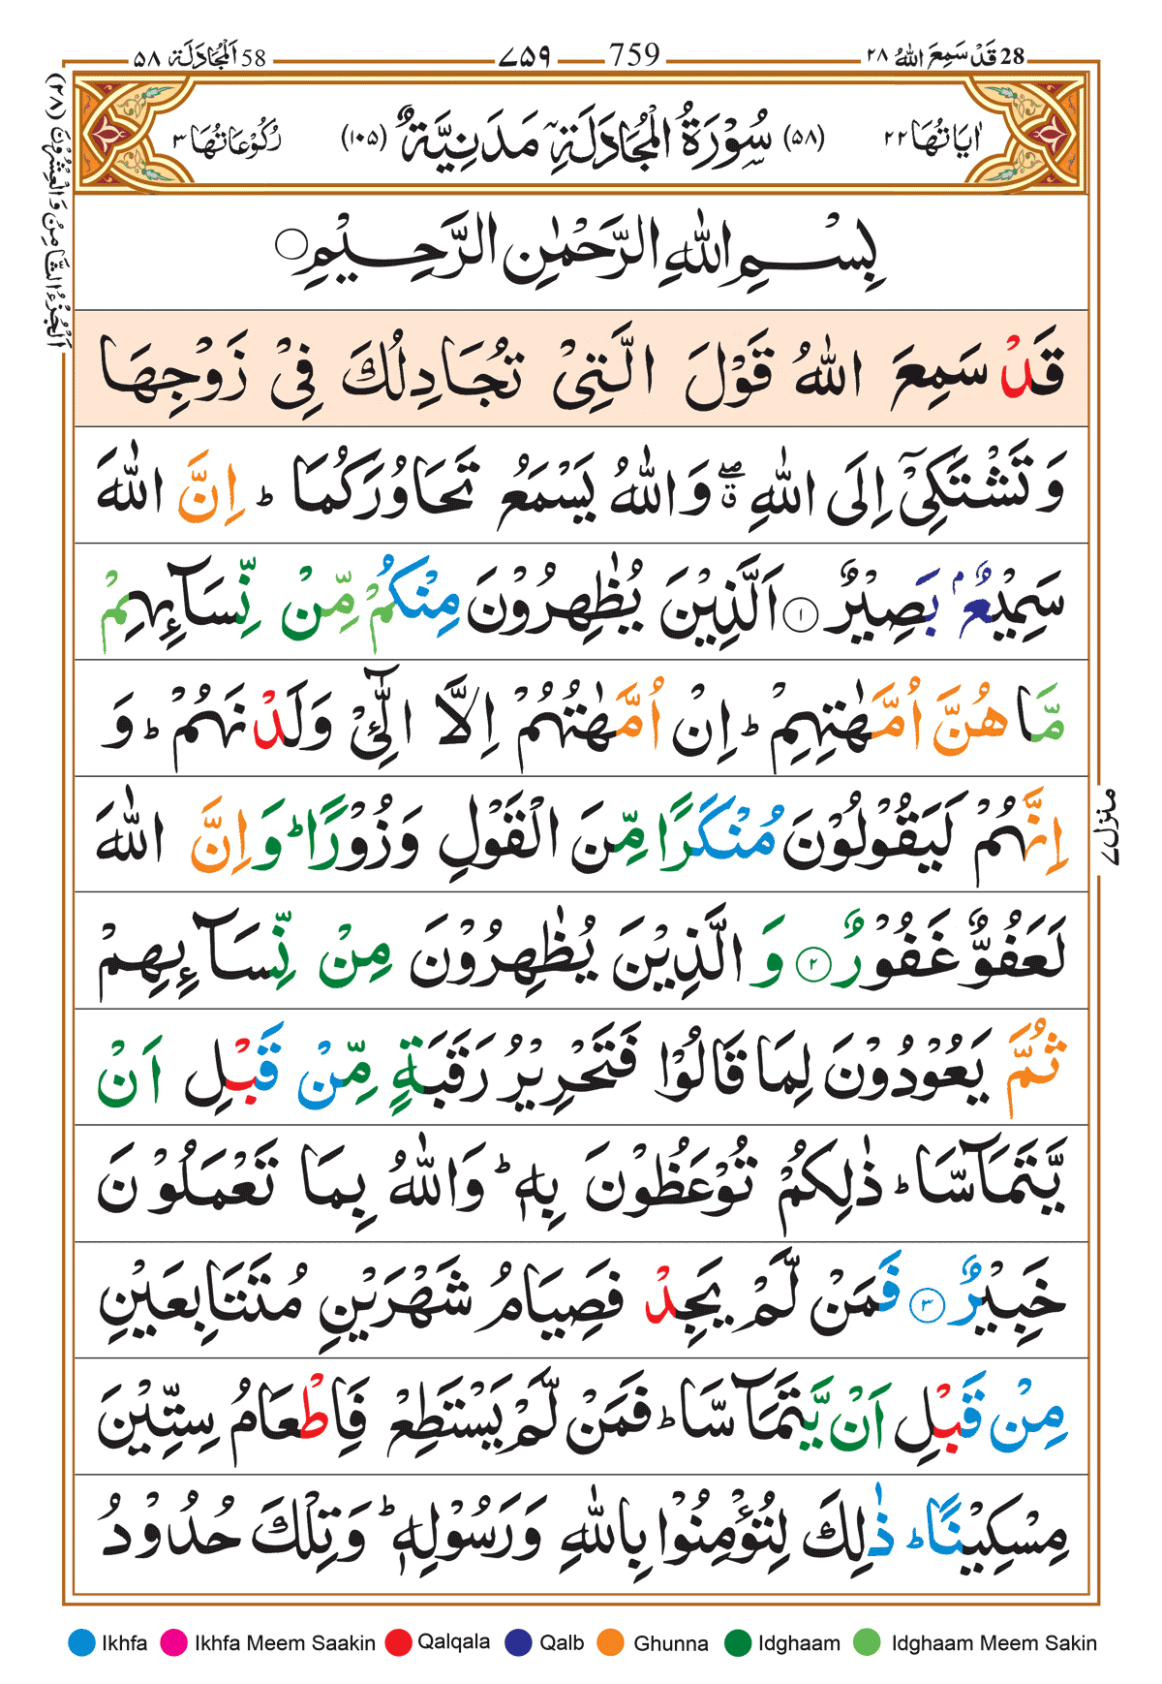 28 قَدْ سَمِعَ اللهُ ٢٨ 759 ٧٥٩ 58 اَلْمُجَادَلَة ٥٨
اٰيَاتُهَا ٢٢ (٥٨) سُوْرَةُ الْمُجَادَلَةِ مَدَنِيَّةٌ (١٠٥) رُكُوْعَاتُهَا ٣
بِسْمِ اللهِ الرَّحْمٰنِ الرَّحِيْمِ
قَدْ سَمِعَ اللهُ قَوْلَ الَّتِىْ تُجَادِلُكَ فِىْ زَوْجِهَا
وَتَشْتَكِىْٓ اِلَى اللهِ ۖۗ وَاللهُ يَسْمَعُ تَحَاوُرَكُمَا ؕ اِنَّ اللهَ
سَمِيْعٌۢ بَصِيْرٌ ١ اَلَّذِيْنَ يُظٰهِرُوْنَ مِنْكُمْ مِّنْ نِّسَآئِهِمْ
مَّا هُنَّ اُمَّهٰتِهِمْ ؕ اِنْ اُمَّهٰتُهُمْ اِلَّا الّٰٓـىِْٔ وَلَدْنَهُمْ ؕ وَ
اِنَّهُمْ لَيَقُوْلُوْنَ مُنْكَرًا مِّنَ الْقَوْلِ وَزُوْرًا ؕ وَاِنَّ اللهَ
لَعَفُوٌّ غَفُوْرٌ ٢ وَالَّذِيْنَ يُظٰهِرُوْنَ مِنْ نِّسَآئِهِمْ
ثُمَّ يَعُوْدُوْنَ لِمَا قَالُوْا فَتَحْرِيْرُ رَقَبَةٍ مِّنْ قَبْلِ اَنْ
يَّتَمَآسَّا ؕ ذٰلِكُمْ تُوْعَظُوْنَ بِهٖ ؕ وَاللهُ بِمَا تَعْمَلُوْنَ
خَبِيْرٌ ٣ فَمَنْ لَّمْ يَجِدْ فَصِيَامُ شَهْرَيْنِ مُتَتَابِعَيْنِ
مِنْ قَبْلِ اَنْ يَّتَمَآسَّا ؕ فَمَنْ لَّمْ يَسْتَطِعْ فَاِطْعَامُ سِتِّيْنَ
مِسْكِيْنًا ؕ ذٰلِكَ لِتُؤْمِنُوْا بِاللهِ وَرَسُوْلِهٖ ؕ وَتِلْكَ حُدُوْدُ
اَلْجُزْءُ الثَّامِنُ وَالْعِشْرُوْنَ (٢٨)
منزل ٧
Ikhfa Ikhfa Meem Saakin Qalqala Qalb Ghunna Idghaam Idghaam Meem Sakin